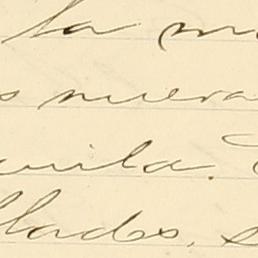 la m
s nueva
uila.
llados, s